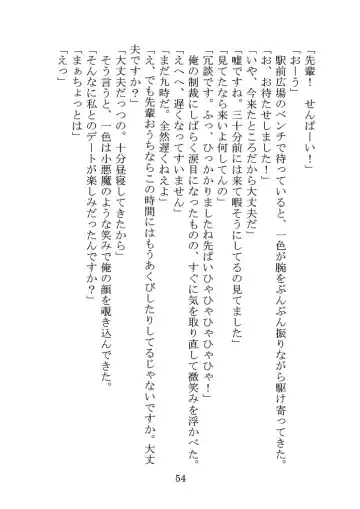 「先輩！　せんぱーい！」
「おーう」
　駅前広場のベンチで待っていると、一色が腕をぶんぶん振りながら駆け寄ってきた。
「お、お待たせしました！」
「いや、今来たところだから大丈夫だ」
「嘘ですね。三十分前には来て暇そうにしてるの見てました」
「見てたなら来いよ何してんの」
「冗談です。ふっ、ひっかかりましたね先ぱいひゃひゃひゃひゃひゃ！」
　俺の制裁にしばらく涙目になったものの、すぐに気を取り直して微笑みを浮かべた。
「えへへ、遅くなってすいません」
「まだ九時だ。全然遅くねえよ」
「え、でも先輩おうちならこの時間にはもうあくびしたりしてるじゃないですか。大丈
夫ですか？」
「大丈夫だっつの。十分昼寝してきたから」
　そう言うと、一色は小悪魔のような笑みで俺の顔を覗き込んできた。
「そんなに私とのデートが楽しみだったんですか？」
「まぁちょっとは」
「えっ」
54